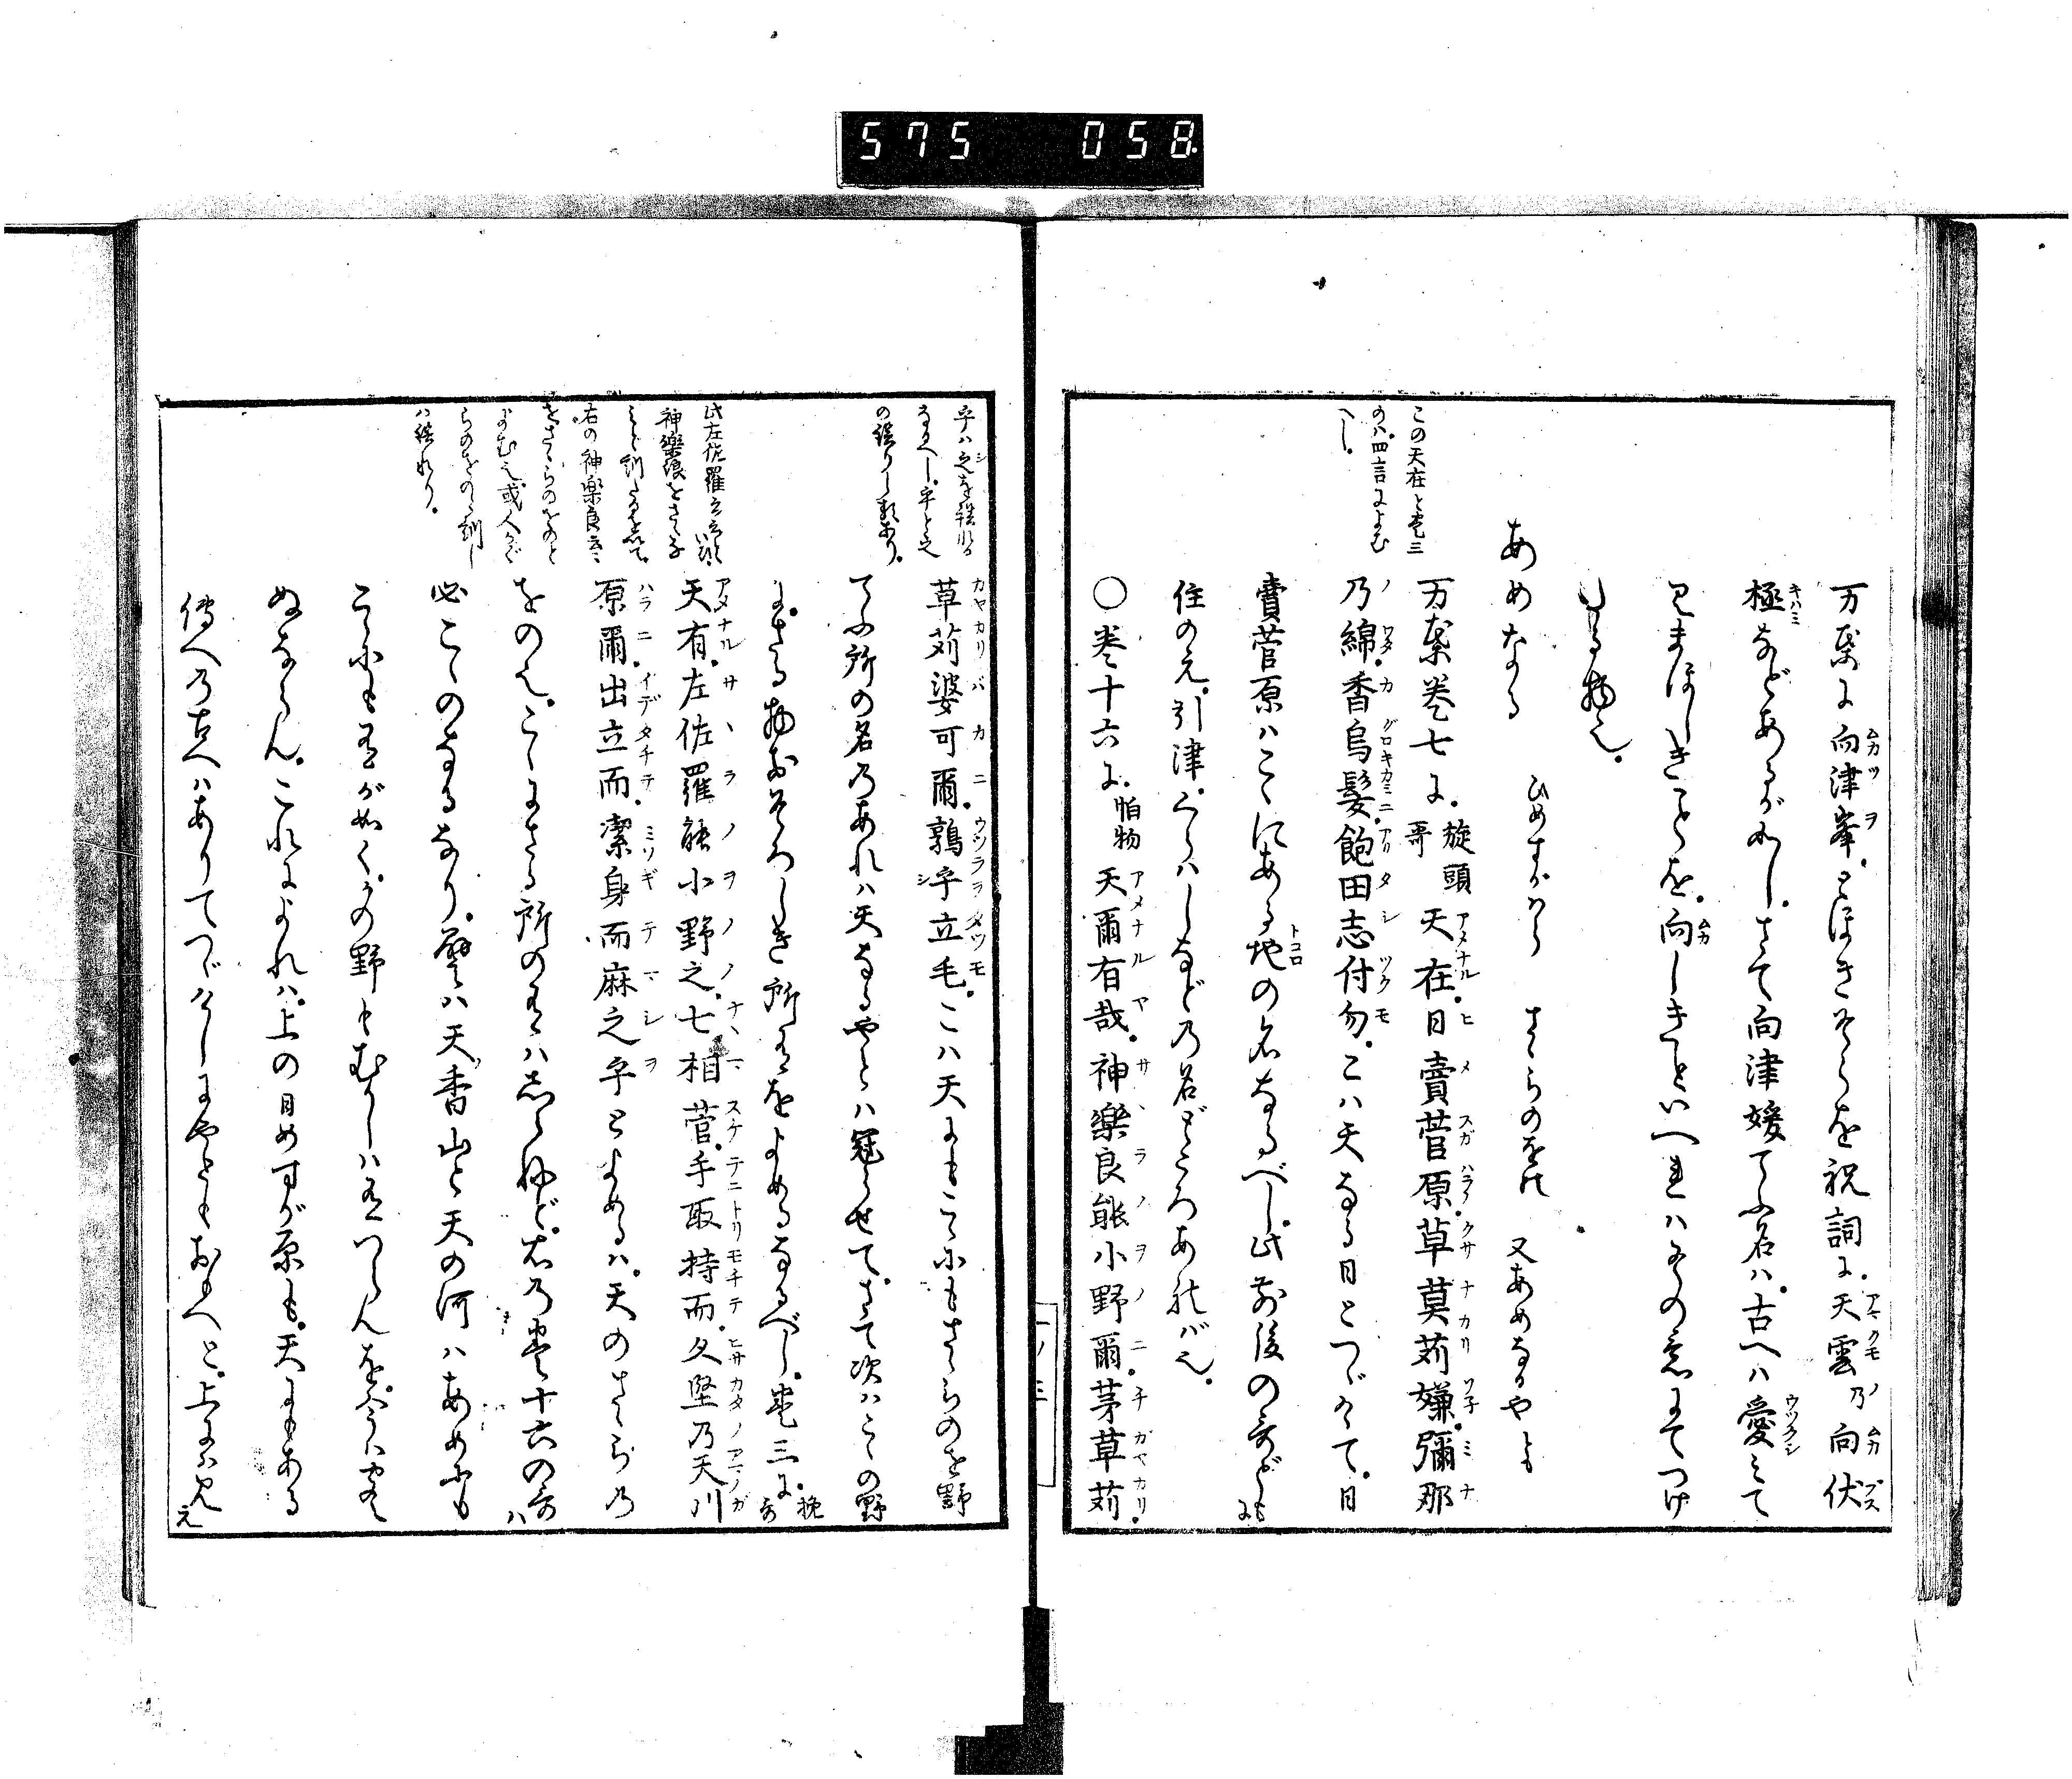 575 058
この天在と巻三
のハ四言によむ
へし
万葉に向津峯とほきそらを祝詞に天雲乃向伏
極などあるが如しさて向津媛てふ名ハ古へハ愛みて
見まほしきことを向しきといへれハその意にてつけ
たる物也
あめなる ひめすがはら さゝらのをの 又あめなるやとも
万葉巻七に旋頭哥天在日賣菅原草莫苅嫌彌那
乃綿香烏髮飽田志付勿こハ天なる日とつゞけて日
賣菅原ハこゝにある地の名なるべし此前後の哥ども
住の元引津くらハしなどの名どころあれバ也
○巻十六に怕物天爾有哉神樂良能小野爾茅草苅
乎ハ之を誤れる
なるへし乎と之
の誤りし類あり
此左佐羅云云の頭
神樂浪をさゝな
みと訓たるを以て
右の神楽良云々
をさゝらのをのと
よむ也或人
らのをのと訓し
ハ誤れり
草苅婆可爾鶉乎立毛こハ天にもこゝにもさゝらのを野
てふ所の名のあれハ天なるやとハ冠らせてさて次ハこゝの野
にさる物おそろしき所有をよめるなるべし巻三に挽哥
天有左佐羅能小野之七相菅手取持而久堅乃天川
原爾出立而潔身而麻之乎とよめるハ天のさゝらの
をの也こゝにさる所の有ハしらねど右の巻十六の哥ハ
必こゝのなるなり譬ハ天香山と天の河ハあめにも
こゝにも有が如くその野もむかしハ有つらんを今ハ
ぬならんこれによれハ上の日めすが原も天にもある
傳への古へハありてつゞけしにやともおもへと上にハ見え